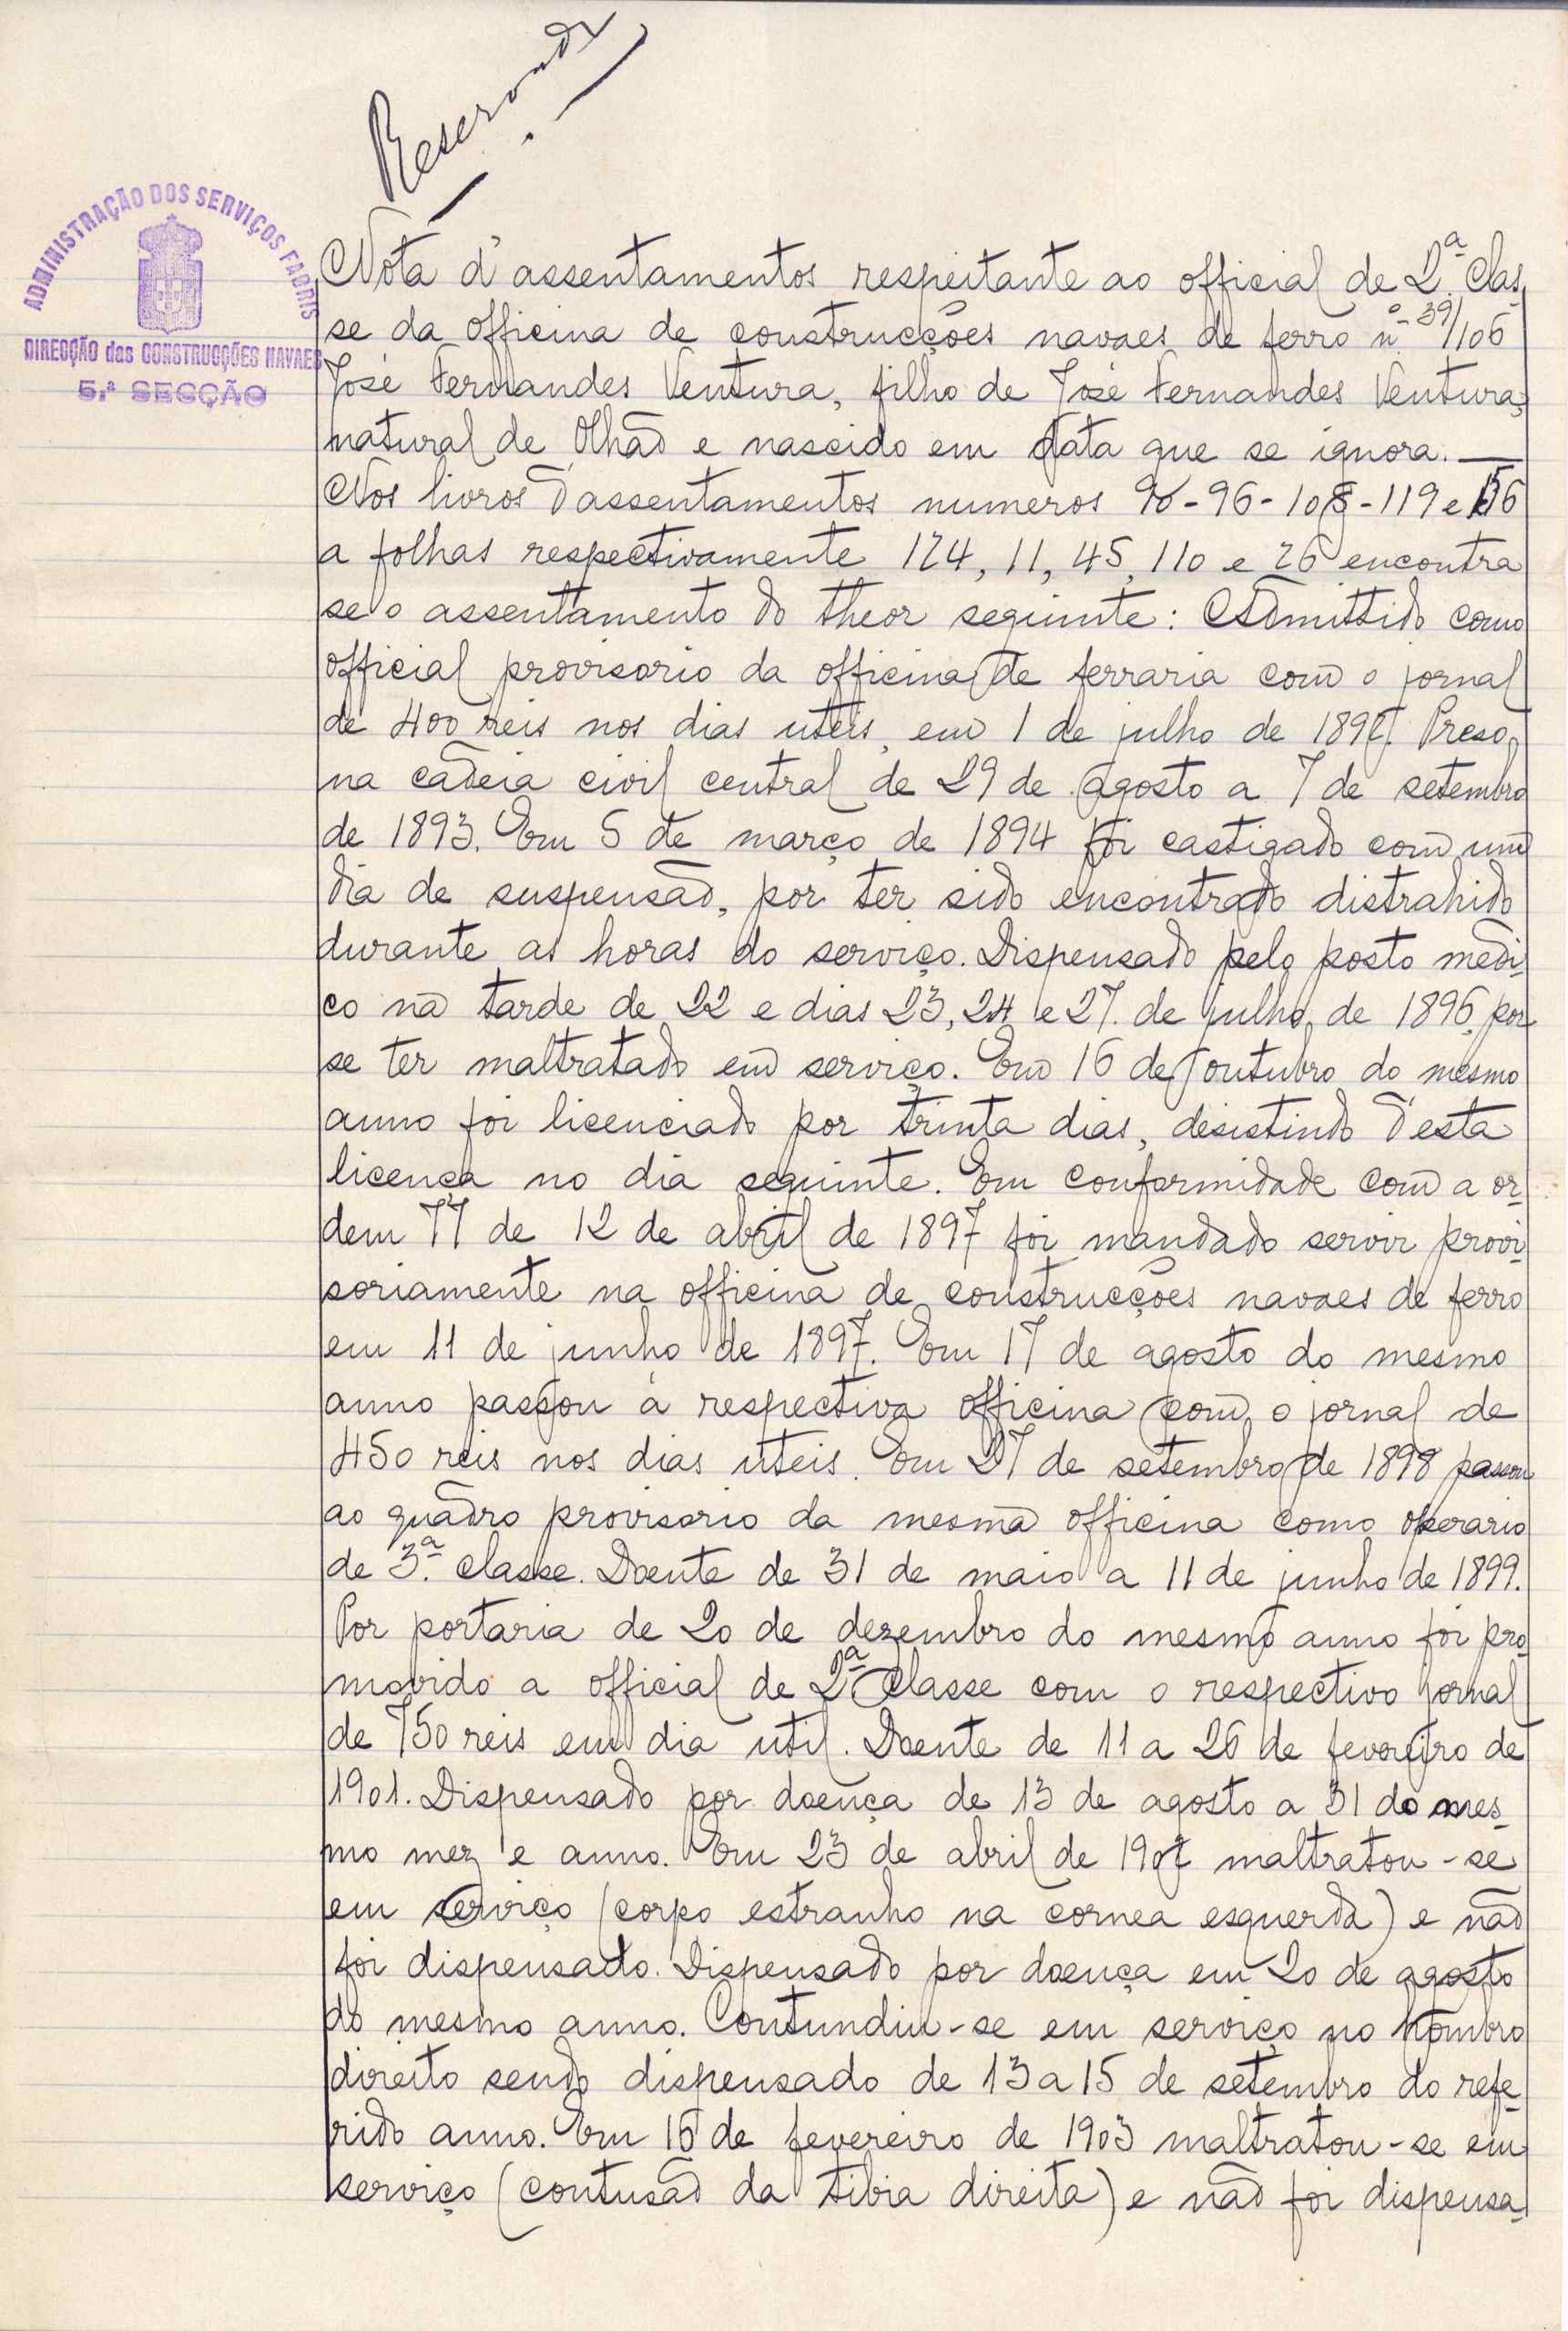 Reservado
ADMINISTRAÇÃO DOS SERVIÇOS FABRIS
DIRECÇÃO das CONSTRUCÇÕES NAVAES
5.ª SECÇÃO
Nota d'assentamentos respeitante ao official de 2.ª Clas-
se da officina de construcções navaes de ferro n.º 39/106
José Fernandes Ventura, filho de José Fernandes Ventura,
natural de Olhão e nascido em data que se ignora. —
Nos livros d'assentamentos numeros 90-96-108-119 e 156
a folhas respectivamente 124, 11, 45, 110 e 26 encontra
se o assentamento do theor seguinte: Admittido como
official provisorio da officina de ferraria com o jornal
de 400 reis nos dias uteis, em 1 de julho de Preso
na cadeia civil central de 29 de agosto a 7 de setembro
de 1893. Em 5 de março de 1894 foi castigado com um
dia de suspensão, por ter sido encontrado distrahido
durante as horas do serviço. Dispensado pelo posto medi-
co na tarde de 22 e dias 23, 24 e 27 de julho de 1896, por
se ter maltratado em serviço. Em 16 de outubro do mesmo
anno foi licenciado por trinta dias, desistindo d'esta
licença no dia seguinte. Em conformidade com a or-
dem 77 de 12 de abril de 1897 foi mandado servir provi-
soriamente na officina de construcções navaes de ferro
em 11 de junho de 1897. Em 17 de agosto do mesmo
anno passou á respectiva officina com o jornal de
450 reis nos dias uteis. Em 27 de setembro de 1898 passou
ao quadro provisorio da mesma officina como operario
de 3.ª classe. Doente de 31 de maio a 11 de junho de 1899.
Por portaria de 20 de dezembro do mesmo anno foi pro-
movido a official de 2.ª Classe com o respectivo jornal
de 750 reis em dia util. Doente de 11 a 26 de fevereiro de
1901. Dispensado por doença de 13 de agosto a 31 do mes-
mo mez e anno. Em 23 de abril de maltratou-se
em serviço (corpo estranho na cornea esquerda) e não
foi dispensado. Dispensado por doença em 20 de agosto
do mesmo anno. Contundiu-se em serviço no hombro
direito sendo dispensado de 13 a 15 de setembro do refe-
rido anno. Em 16 de fevereiro de 1903 maltratou-se em
serviço (contusão da tibia direita) e não foi dispensa-